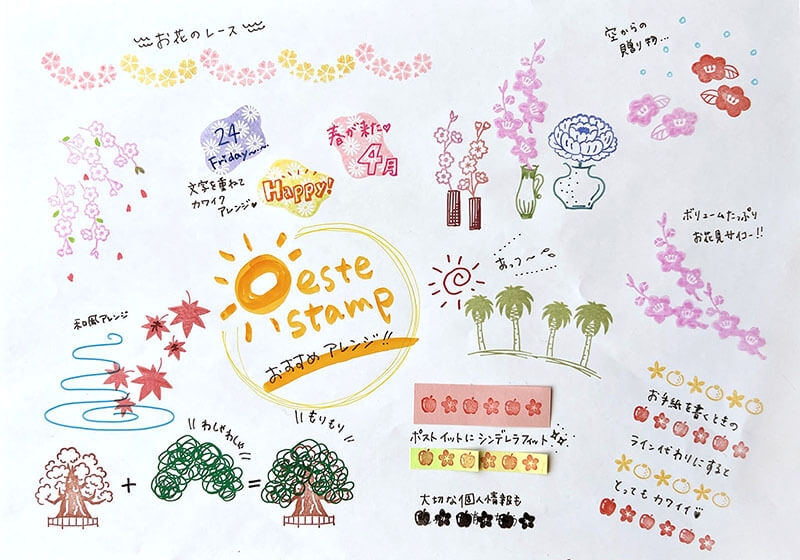 お花のレース
空からの
贈り物...
24
Friday
春が来た♡
4月
文字を重ねて
カワイク
アレンジ♥
Happy!
ボリュームたっぷり
お花見サイコー!!
Oeste
stamp
おすすめ アレンジ!!
あっつ〜
和風アレンジ
わしゃわしゃ
もりもり
+
=
ポストイットに シンデレラフィット
大切な個人情報も
お手紙を書くときの
ライン代わりにすると
とってもカワイイ